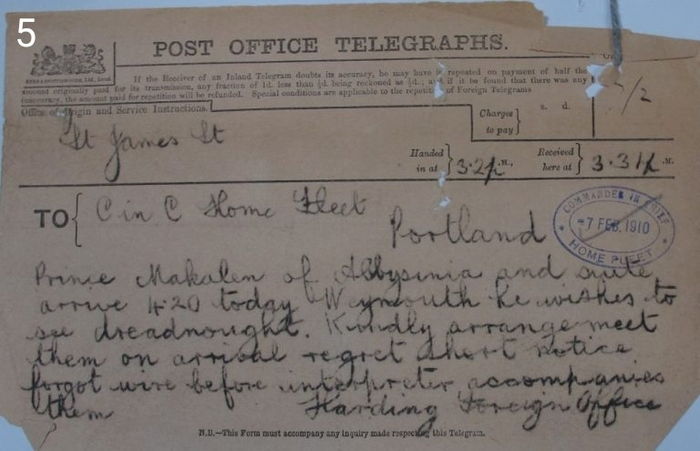 5
POST OFFICE TELEGRAPHS.
If the Receiver of an Inland Telegram doubts its accuracy, he may have it repeated on payment of half the
amount originally paid for its transmission, any fraction of 1d. less than ½d. being reckoned as ½d.; and if it be found that there was any
inaccuracy, the amount paid for repetition will be refunded. Special conditions are applicable to the repetition of Foreign Telegrams
Office of Origin and Service Instructions.
Charges to pay
s. d.
St James St
Handed in at 3.2 M.,
Received here at 3.31 M.
TO C in C Home Fleet
Portland
COMMANDER IN CHIEF
-7 FEB. 1910
HOME FLEET
Prince Makalen of Abbysinia and suite
arrive 4.20 today Weymouth he wishes to
see dreadnought. Kindly arrange meet
them on arrival regret short notice
forgot wire before interpreter accompanies
them Harding Foreign Office
N.B.—This Form must accompany any inquiry made respecting this Telegram.